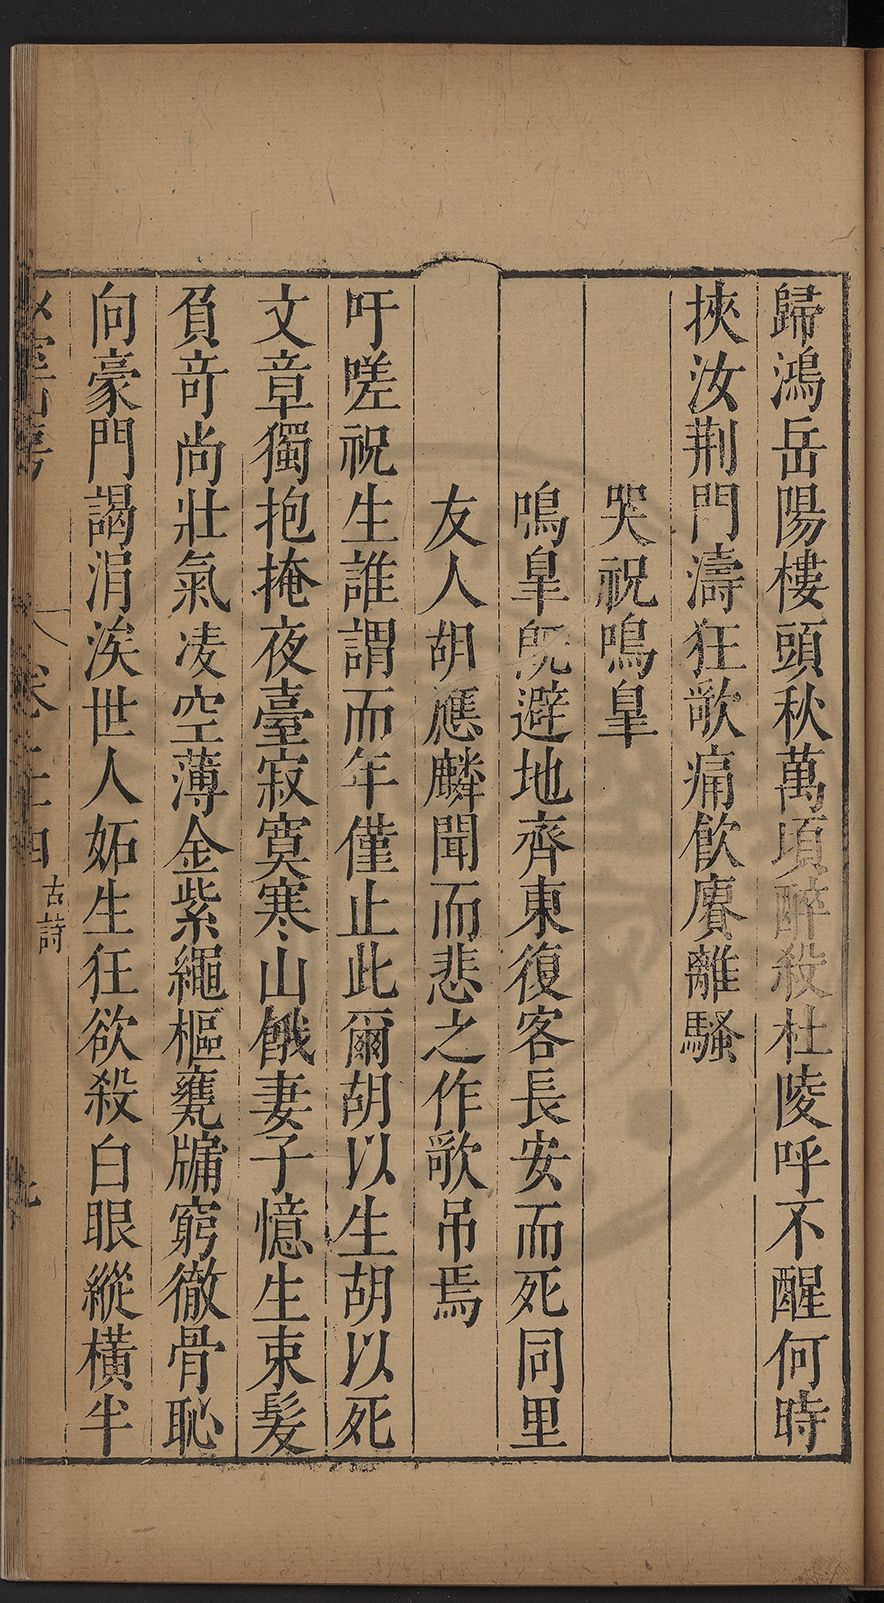 歸鴻岳陽樓頭秋萬頃醉殺杜陵呼不醒何時
挾汝荆門濤狂歌痛飲賡離騷
哭祝鳴臯
鳴臯旣避地齊東復客長安而死同里
友人胡應麟聞而悲之作歌吊焉
吁嗟祝生誰謂而年僅止此爾胡以生胡以死
文章獨抱掩夜臺寂寞寒山餓妻子憶生束髮
負竒尚壯氣凌空薄金紫繩樞甕牖窮徹骨恥
向豪門謁涓涘世人妬生狂欲殺白眼縱橫半
古詩